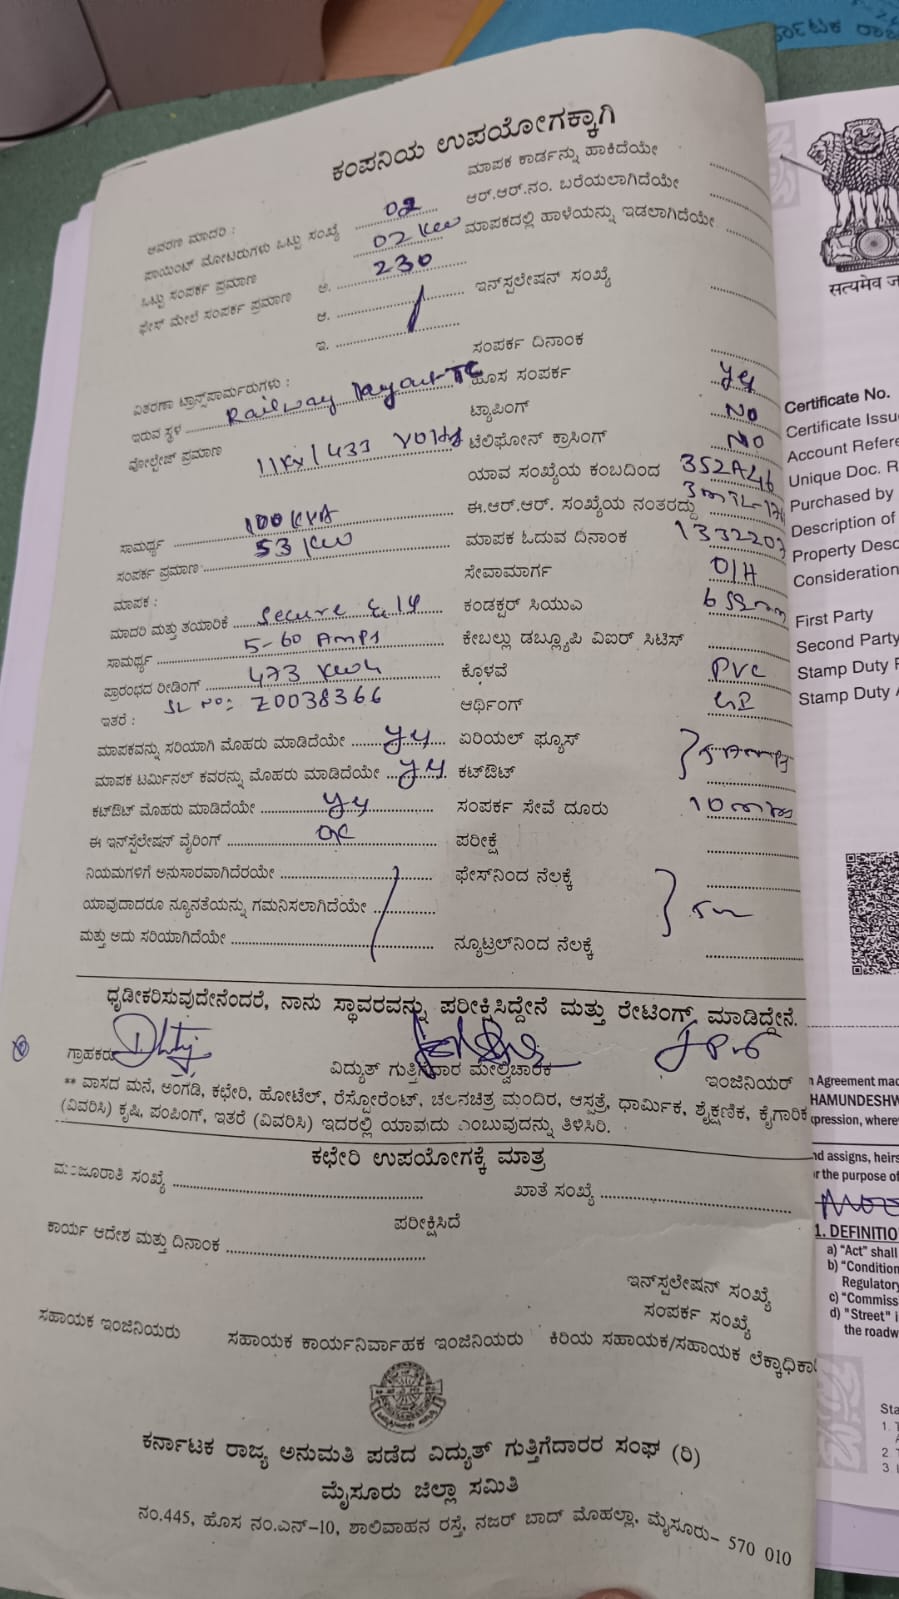 ರ್ನಾಟಕ ರಾಜ
ಕಂಪನಿಯ ಉಪಯೋಗಕ್ಕಾಗಿ
ಮಾಪಕ ಕಾರ್ಡನ್ನು ಹಾಕಿದೆಯೇ
ಆವರಣ ಮಾದರಿ :
ಆರ್.ಆರ್.ನಂ. ಬರೆಯಲಾಗಿದೆಯೇ
ಪಾಯಿಂಟ್ ಮೋಟರುಗಳು ಒಟ್ಟು ಸಂಖ್ಯೆ 02
ಮಾಪಕದಲ್ಲಿ ಹಾಳೆಯನ್ನು ಇಡಲಾಗಿದೆಯೇ
ಒಟ್ಟು ಸಂಪರ್ಕ ಪ್ರಮಾಣ 02 KW
ಫೇಸ್ ಮೇಲೆ ಸಂಪರ್ಕ ಪ್ರಮಾಣ ಅ. 230
ಇನ್‌ಸ್ಪಲೇಷನ್ ಸಂಖ್ಯೆ
ಆ.
ಇ.
ಸಂಪರ್ಕ ದಿನಾಂಕ
ವಿತರಣಾ ಟ್ರಾನ್ಸ್‌ಪಾರ್ಮರುಗಳು :
ಹೊಸ ಸಂಪರ್ಕ yes
ಇರುವ ಸ್ಥಳ Railway layout TC
ಟ್ಯಾಪಿಂಗ್ NO
ವೋಲ್ಟೇಜ್ ಪ್ರಮಾಣ 11KV/433 Volts
ಟೆಲಿಫೋನ್ ಕ್ರಾಸಿಂಗ್ NO
ಯಾವ ಸಂಖ್ಯೆಯ ಕಂಬದಿಂದ
ಸಾಮರ್ಥ್ಯ 100 KVA
ಈ.ಆರ್.ಆರ್. ಸಂಖ್ಯೆಯ ನಂತರದ್ದು
ಸಂಪರ್ಕ ಪ್ರಮಾಣ 53 KW
ಮಾಪಕ ಓದುವ ದಿನಾಂಕ
ಮಾಪಕ :
ಸೇವಾಮಾರ್ಗ O/H
ಮಾದರಿ ಮತ್ತು ತಯಾರಿಕೆ Secure
ಕಂಡಕ್ಟರ್ ಸಿಯುಎ
ಸಾಮರ್ಥ್ಯ 5-60 Amps
ಕೇಬಲ್ಲು ಡಬ್ಲ್ಯೂಪಿ ವಿಐರ್ ಸಿಟಿಸ್
ಪ್ರಾರಂಭದ ರೀಡಿಂಗ್ 473 KWH
ಕೊಳವೆ PVC
ಇತರೆ : SL NO: Z0038366
ಆರ್ಥಿಂಗ್ GI
ಮಾಪಕವನ್ನು ಸರಿಯಾಗಿ ಮೊಹರು ಮಾಡಿದೆಯೇ yes
ಏರಿಯಲ್ ಫ್ಯೂಸ್
ಮಾಪಕ ಟರ್ಮಿನಲ್ ಕವರನ್ನು ಮೊಹರು ಮಾಡಿದೆಯೇ yes
ಕಟ್‌ಔಟ್
ಕಟ್‌ಔಟ್ ಮೊಹರು ಮಾಡಿದೆಯೇ yes
ಸಂಪರ್ಕ ಸೇವೆ ದೂರು
ಈ ಇನ್‌ಸ್ಪೆಲೇಷನ್ ವೈರಿಂಗ್ ok
ಪರೀಕ್ಷೆ
ನಿಯಮಗಳಿಗೆ ಅನುಸಾರವಾಗಿದೆರಯೇ
ಫೇಸ್‌ನಿಂದ ನೆಲಕ್ಕೆ
ಯಾವುದಾದರೂ ನ್ಯೂನತೆಯನ್ನು ಗಮನಿಸಲಾಗಿದೆಯೇ
ಮತ್ತು ಅದು ಸರಿಯಾಗಿದೆಯೇ
ನ್ಯೂಟ್ರಲ್‌ನಿಂದ ನೆಲಕ್ಕೆ
ಧೃಡೀಕರಿಸುವುದೇನೆಂದರೆ, ನಾನು ಸ್ಥಾವರವನ್ನು ಪರೀಕ್ಷಿಸಿದ್ದೇನೆ ಮತ್ತು ರೇಟಿಂಗ್ ಮಾಡಿದ್ದೇನೆ.
ಗ್ರಾಹಕರು ವಿದ್ಯುತ್ ಗುತ್ತಿಗೆದಾರ ಮೇಲ್ವಿಚಾರಕ ಇಂಜಿನಿಯರ್
** ವಾಸದ ಮನೆ, ಅಂಗಡಿ, ಕಛೇರಿ, ಹೋಟೆಲ್, ರೆಸ್ಟೋರೆಂಟ್, ಚಲನಚಿತ್ರ ಮಂದಿರ, ಆಸ್ಪತ್ರೆ, ಧಾರ್ಮಿಕ, ಶೈಕ್ಷಣಿಕ, ಕೈಗಾರಿಕ
(ವಿವರಿಸಿ) ಕೃಷಿ, ಪಂಪಿಂಗ್, ಇತರೆ (ವಿವರಿಸಿ) ಇದರಲ್ಲಿ ಯಾವುದು ಎಂಬುವುದನ್ನು ತಿಳಿಸಿರಿ.
ಕಛೇರಿ ಉಪಯೋಗಕ್ಕೆ ಮಾತ್ರ
ಮಂಜೂರಾತಿ ಸಂಖ್ಯೆ
ಖಾತೆ ಸಂಖ್ಯೆ
ಪರೀಕ್ಷಿಸಿದೆ
ಕಾರ್ಯ ಆದೇಶ ಮತ್ತು ದಿನಾಂಕ
ಇನ್‌ಸ್ಪಲೇಷನ್ ಸಂಖ್ಯೆ
ಸಂಪರ್ಕ ಸಂಖ್ಯೆ
ಸಹಾಯಕ ಇಂಜಿನಿಯರು ಸಹಾಯಕ ಕಾರ್ಯನಿರ್ವಾಹಕ ಇಂಜಿನಿಯರು ಕಿರಿಯ ಸಹಾಯಕ/ಸಹಾಯಕ ಲೆಕ್ಕಾಧಿಕಾ
ಕರ್ನಾಟಕ ರಾಜ್ಯ ಅನುಮತಿ ಪಡೆದ ವಿದ್ಯುತ್ ಗುತ್ತಿಗೆದಾರರ ಸಂಘ (ರಿ)
ಮೈಸೂರು ಜಿಲ್ಲಾ ಸಮಿತಿ
ನಂ.445, ಹೊಸ ನಂ.ಎನ್-10, ಶಾಲಿವಾಹನ ರಸ್ತೆ, ನಜರ್ ಬಾದ್ ಮೊಹಲ್ಲಾ, ಮೈಸೂರು- 570 010
सत्यमेव ज
Certificate No.
Certificate Issu
Account Refere
Unique Doc. R
Purchased by
Description of
Property Desc
Consideration
First Party
Second Party
Stamp Duty P
Stamp Duty A
n Agreement mad
HAMUNDESHW
pression, where
nd assigns, heirs
r the purpose of
1. DEFINITIO
a) "Act" shall
b) "Condition
Regulatory
c) "Commiss
d) "Street" i
the roadw
Sta